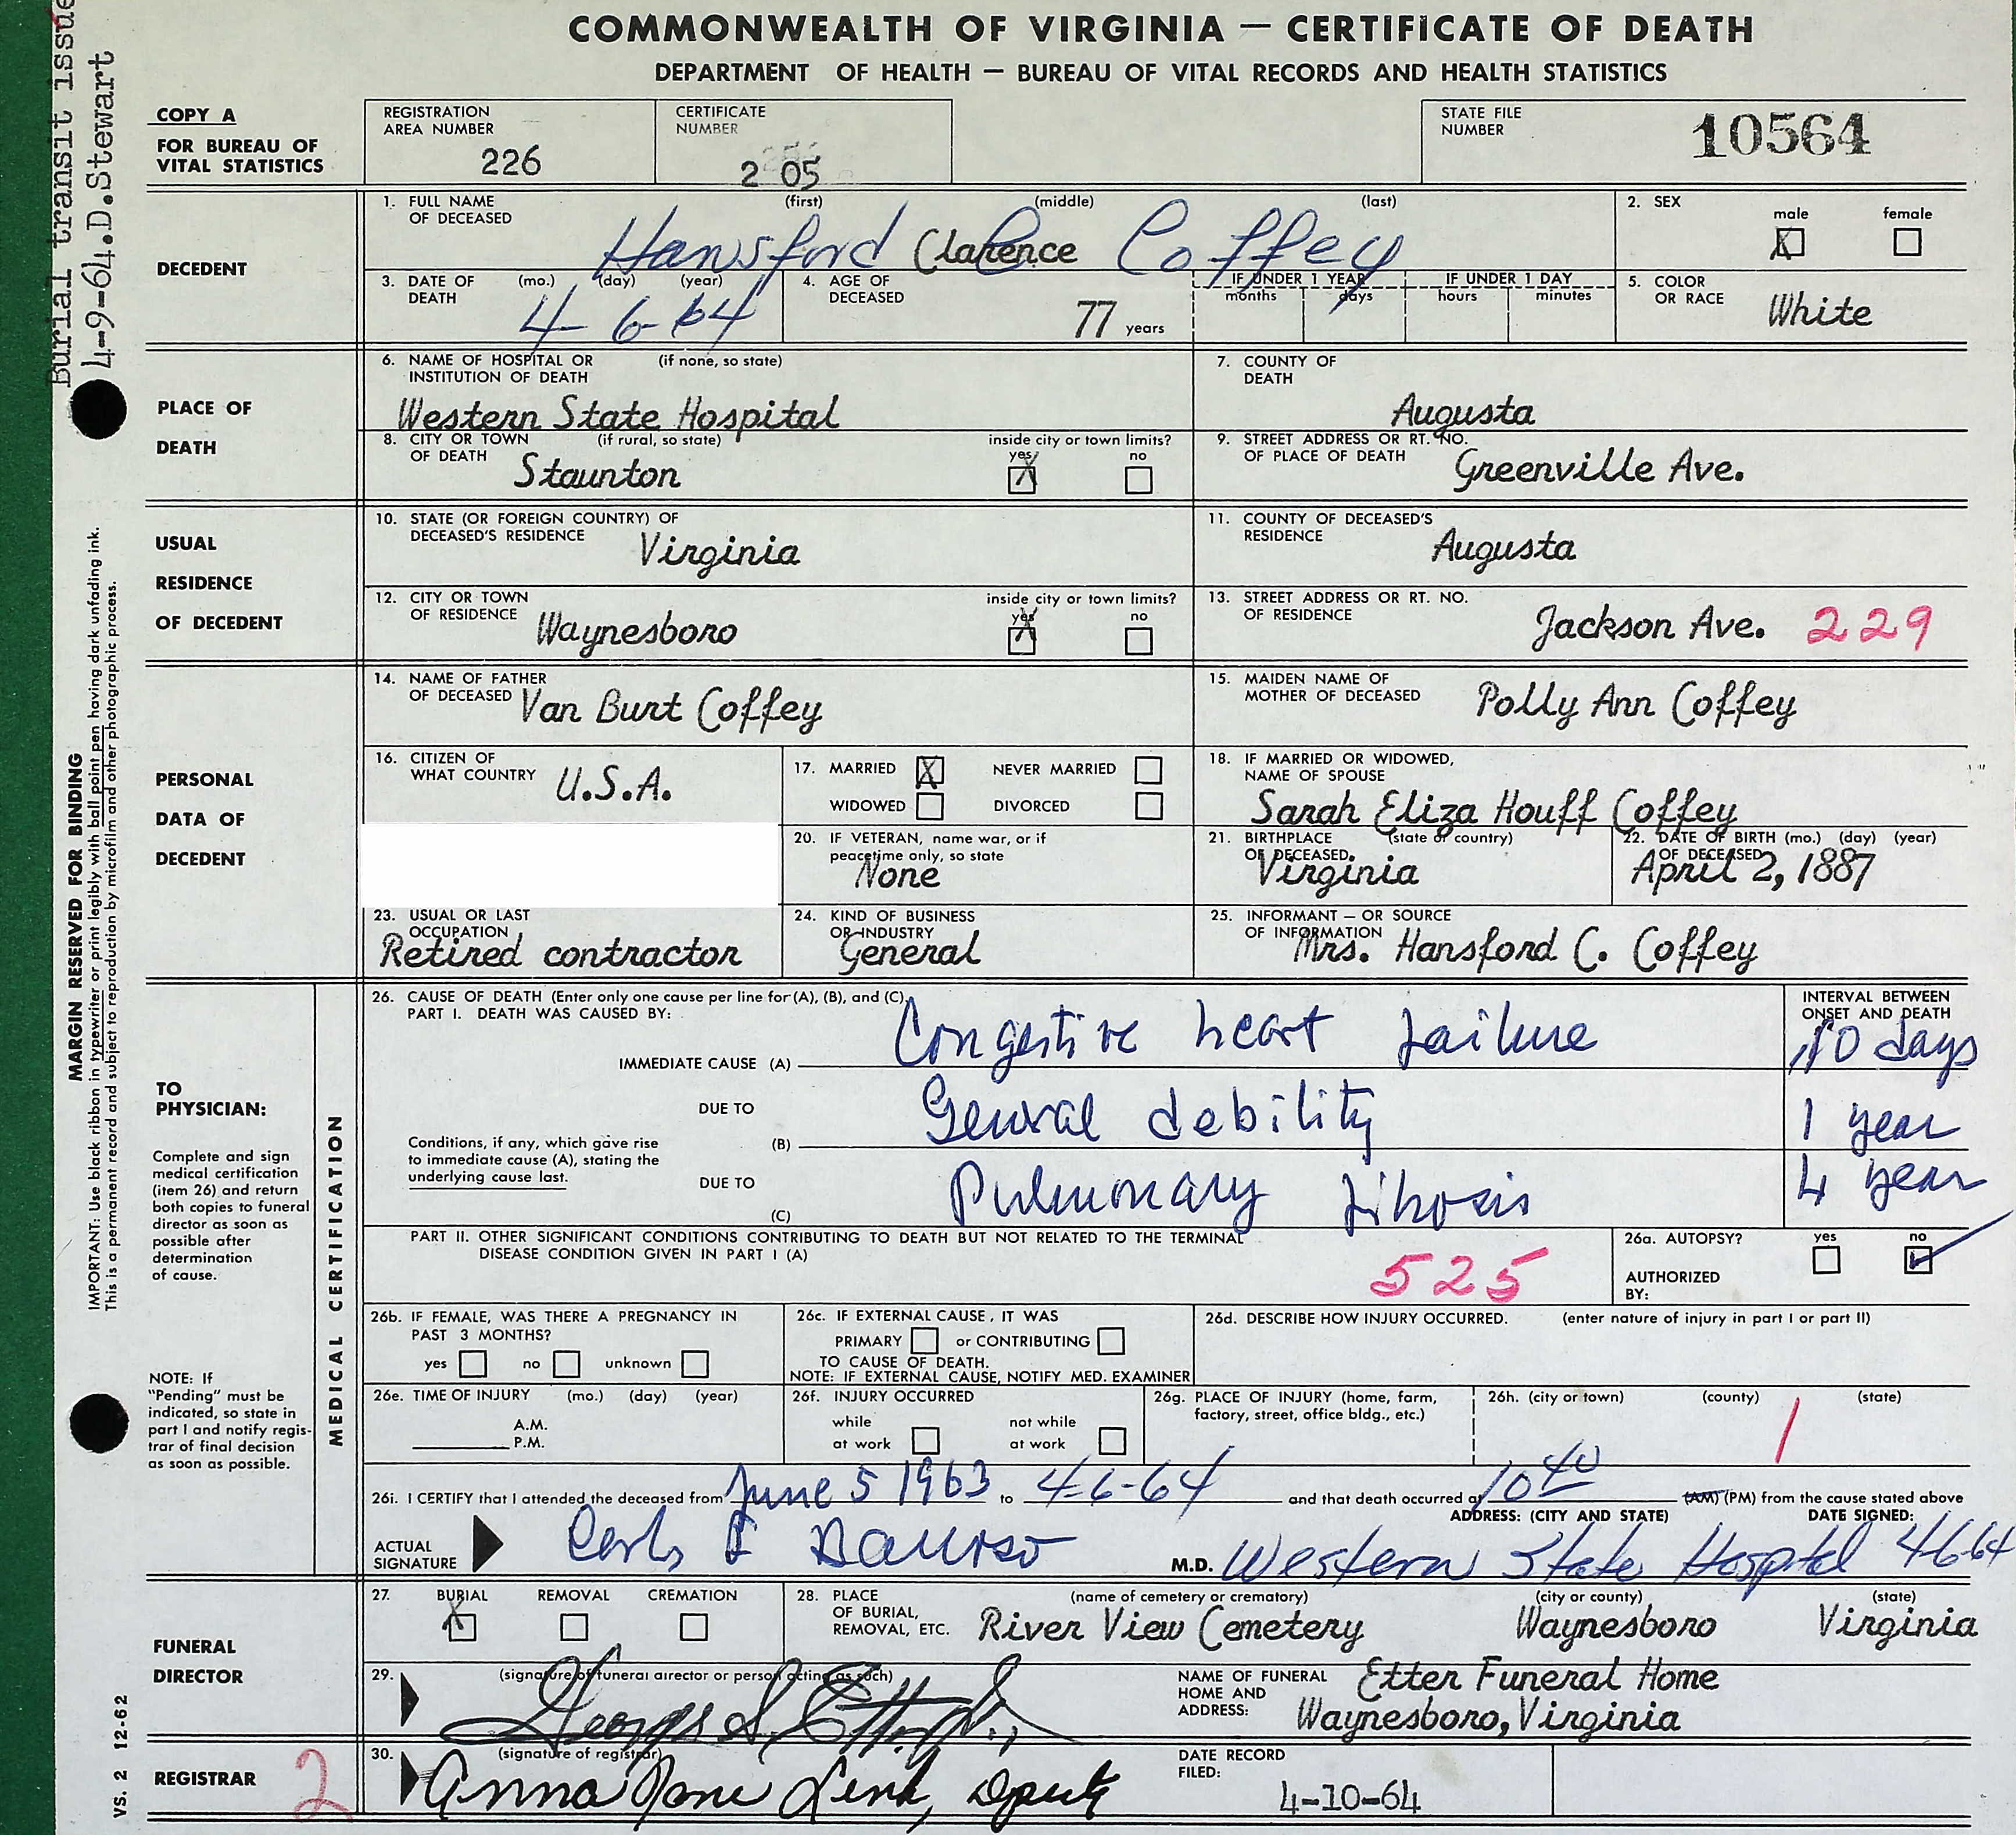 COMMONWEALTH OF VIRGINIA — CERTIFICATE OF DEATH
DEPARTMENT OF HEALTH — BUREAU OF VITAL RECORDS AND HEALTH STATISTICS
Burial transit issue
4-9-64.D.Stewart
COPY A
FOR BUREAU OF
VITAL STATISTICS
REGISTRATION
AREA NUMBER
226
CERTIFICATE
NUMBER
2 05
STATE FILE
NUMBER
10564
DECEDENT
1. FULL NAME
OF DECEASED
(first) (middle) (last)
Hansford Clarence Coffey
2. SEX
male female
X
3. DATE OF
DEATH
(mo.) (day) (year)
4-6-64
4. AGE OF
DECEASED
77 years
IF UNDER 1 YEAR
months days
IF UNDER 1 DAY
hours minutes
5. COLOR
OR RACE
White
PLACE OF
DEATH
6. NAME OF HOSPITAL OR (if none, so state)
INSTITUTION OF DEATH
Western State Hospital
7. COUNTY OF
DEATH
Augusta
8. CITY OR TOWN (if rural, so state)
OF DEATH
Staunton
inside city or town limits?
yes no
X
9. STREET ADDRESS OR RT. NO.
OF PLACE OF DEATH
Greenville Ave.
USUAL
RESIDENCE
OF DECEDENT
10. STATE (OR FOREIGN COUNTRY) OF
DECEASED'S RESIDENCE
Virginia
11. COUNTY OF DECEASED'S
RESIDENCE
Augusta
12. CITY OR TOWN
OF RESIDENCE
Waynesboro
inside city or town limits?
yes no
X
13. STREET ADDRESS OR RT. NO.
OF RESIDENCE
Jackson Ave. 229
PERSONAL
DATA OF
DECEDENT
14. NAME OF FATHER
OF DECEASED
Van Burt Coffey
15. MAIDEN NAME OF
MOTHER OF DECEASED
Polly Ann Coffey
16. CITIZEN OF
WHAT COUNTRY
U.S.A.
17. MARRIED X NEVER MARRIED
WIDOWED DIVORCED
18. IF MARRIED OR WIDOWED,
NAME OF SPOUSE
Sarah Eliza Houff Coffey
20. IF VETERAN, name war, or if
peacetime only, so state
None
21. BIRTHPLACE (state or country)
OF DECEASED
Virginia
22. DATE OF BIRTH (mo.) (day) (year)
OF DECEASED
April 2, 1887
23. USUAL OR LAST
OCCUPATION
Retired contractor
24. KIND OF BUSINESS
OR INDUSTRY
General
25. INFORMANT — OR SOURCE
OF INFORMATION
Mrs. Hansford C. Coffey
MARGIN RESERVED FOR BINDING
IMPORTANT: Use black ribbon in typewriter or print legibly with ball point pen having dark unfading ink.
This is a permanent record and subject to reproduction by microfilm and other photographic process.
TO
PHYSICIAN:
Complete and sign
medical certification
(item 26) and return
both copies to funeral
director as soon as
possible after
determination
of cause.
NOTE: If
"Pending" must be
indicated, so state in
part I and notify regis-
trar of final decision
as soon as possible.
MEDICAL CERTIFICATION
26. CAUSE OF DEATH (Enter only one cause per line for (A), (B), and (C).
PART I. DEATH WAS CAUSED BY:
INTERVAL BETWEEN
ONSET AND DEATH
IMMEDIATE CAUSE (A) Congestive heart failure 10 days
DUE TO
(B) General debility 1 year
Conditions, if any, which gave rise
to immediate cause (A), stating the
underlying cause last.
DUE TO
(C) Pulmonary fibrosis 4 year
PART II. OTHER SIGNIFICANT CONDITIONS CONTRIBUTING TO DEATH BUT NOT RELATED TO THE TERMINAL
DISEASE CONDITION GIVEN IN PART I (A)
525
26a. AUTOPSY? yes no
AUTHORIZED
BY:
26b. IF FEMALE, WAS THERE A PREGNANCY IN
PAST 3 MONTHS?
yes no unknown
26c. IF EXTERNAL CAUSE, IT WAS
PRIMARY or CONTRIBUTING
TO CAUSE OF DEATH.
NOTE: IF EXTERNAL CAUSE, NOTIFY MED. EXAMINER
26d. DESCRIBE HOW INJURY OCCURRED. (enter nature of injury in part I or part II)
26e. TIME OF INJURY (mo.) (day) (year)
A.M.
P.M.
26f. INJURY OCCURRED
while not while
at work at work
26g. PLACE OF INJURY (home, farm,
factory, street, office bldg., etc.)
26h. (city or town) (county) (state)
1
26i. I CERTIFY that I attended the deceased from June 5 1963 to 4-6-64 and that death occurred at 10 40 (AM) (PM) from the cause stated above
ADDRESS: (CITY AND STATE) DATE SIGNED:
ACTUAL
SIGNATURE
M.D. Western State Hosptal 4664
FUNERAL
DIRECTOR
27. BURIAL REMOVAL CREMATION
X
28. PLACE
OF BURIAL,
REMOVAL, ETC.
(name of cemetery or crematory) (city or county) (state)
River View Cemetery Waynesboro Virginia
29. (signature of funeral director or person acting as such)
George S. Etter Jr.
NAME OF FUNERAL
HOME AND
ADDRESS:
Etter Funeral Home
Waynesboro, Virginia
REGISTRAR
2
30. (signature of registrar)
Anna Jane
DATE RECORD
FILED:
4-10-64
VS. 2 12-62